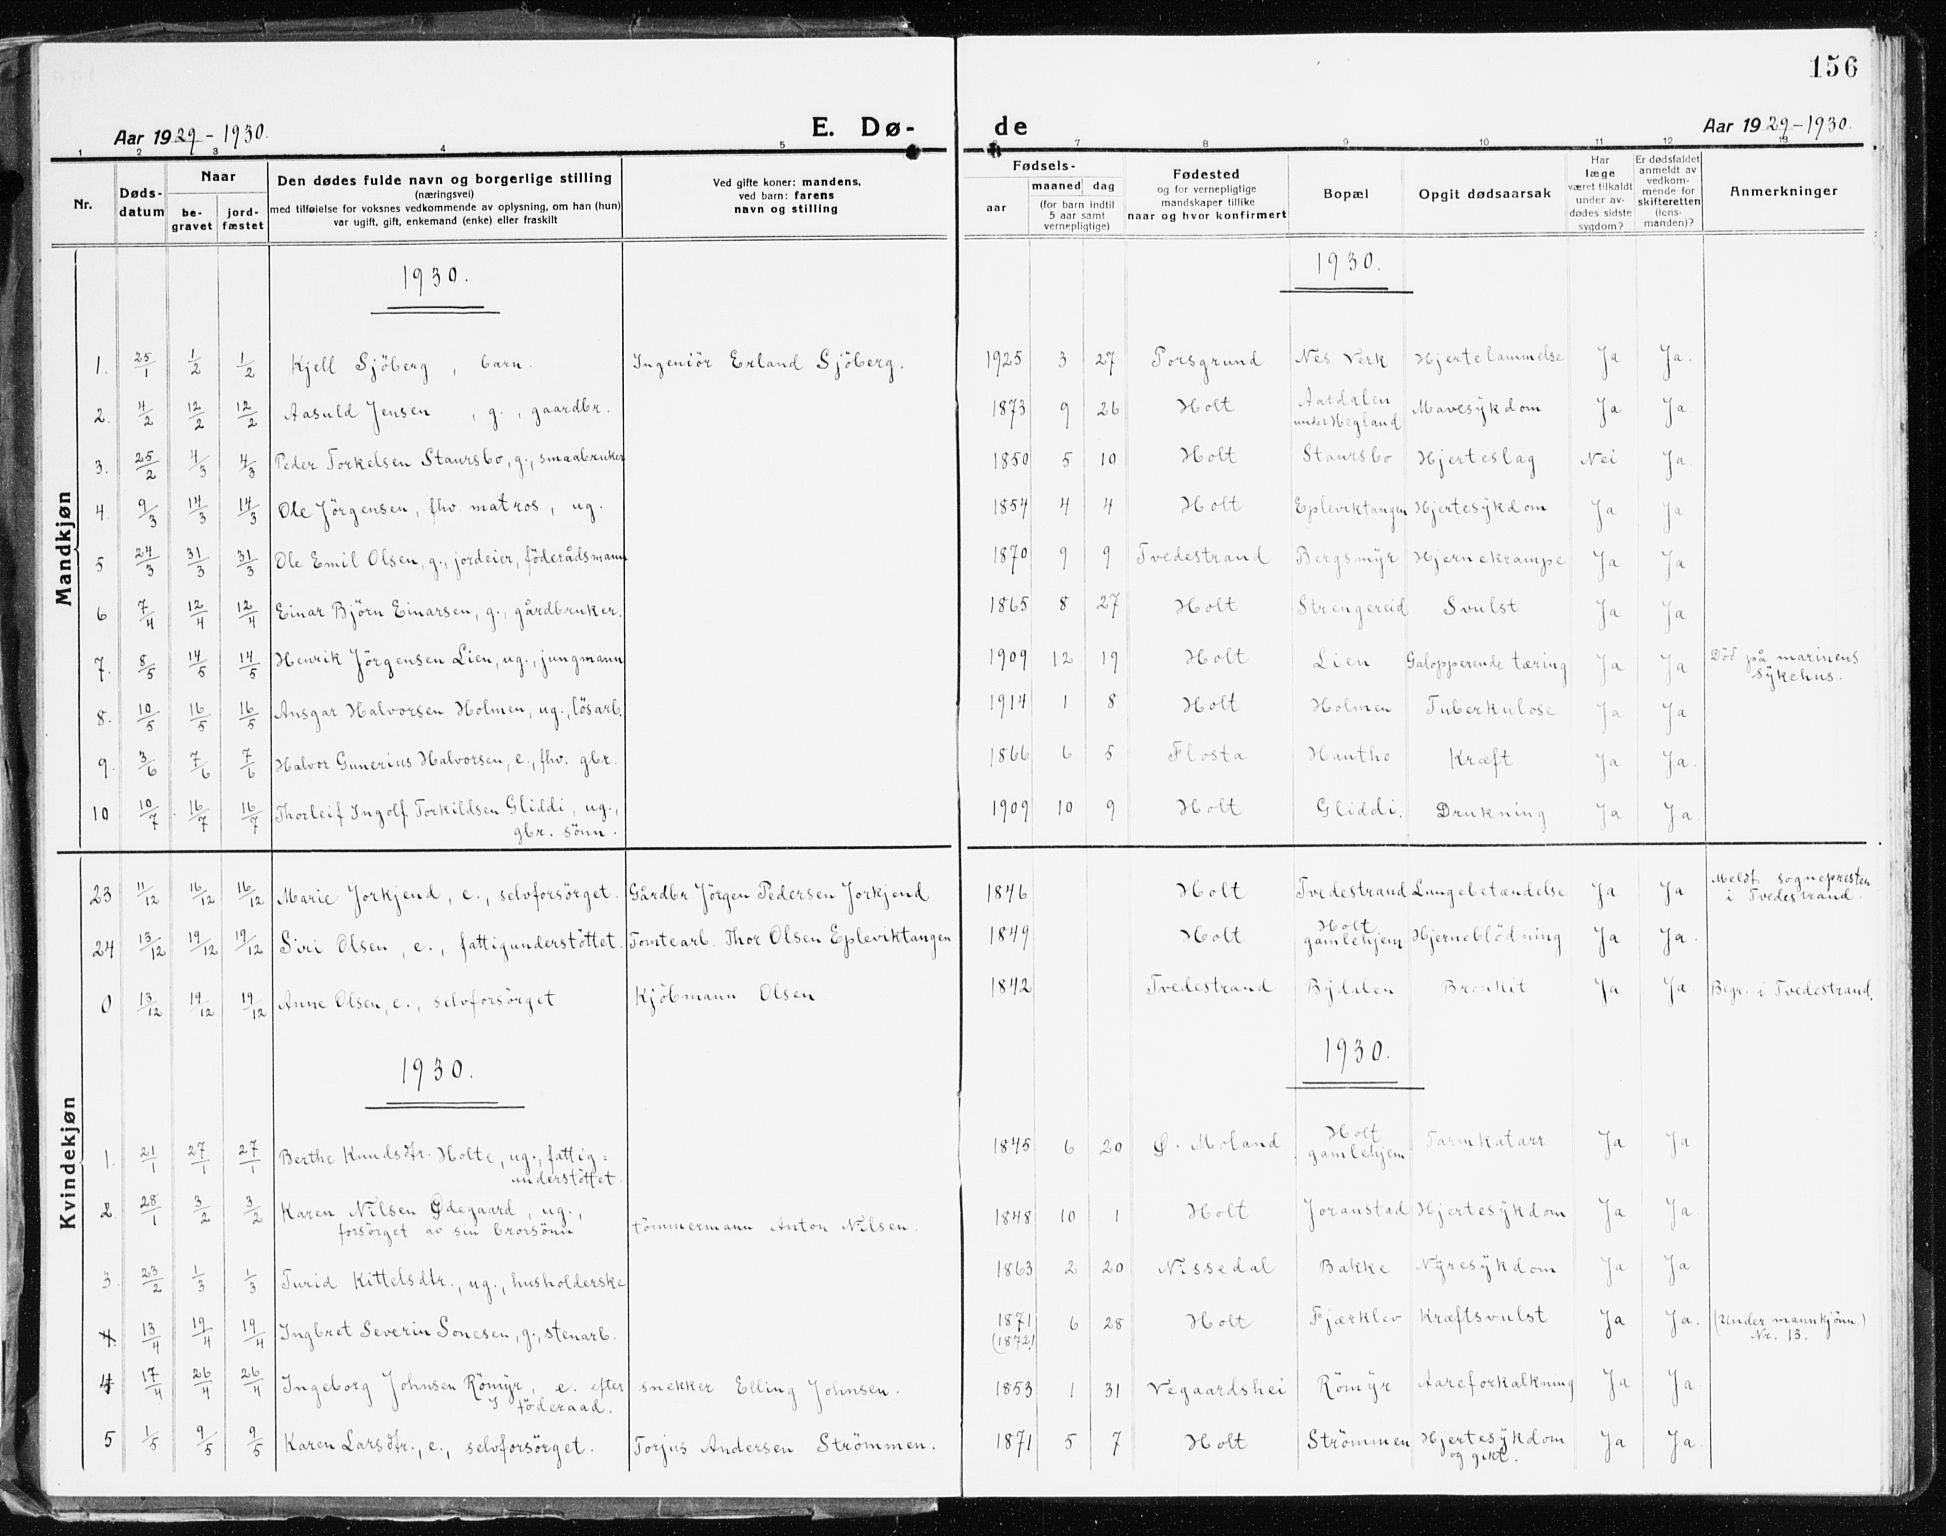 156
Aar 1929-1930. E. Dø- de Aar 1929-1930.
1 2 3 4 5 7 8 9 10 11 12 13
Nr. | Døds-datum | Naar be-gravet | jord-fæstet | Den dødes fulde navn og borgerlige stilling (næringsvei) med tilføielse for voksnes vedkommende av oplysning, om han (hun) var ugift, gift, enkemand (enke) eller fraskilt | Ved gifte koner: mandens, ved barn: farens navn og stilling | Fødsels- aar | maaned | dag (for barn indtil 5 aar samt vernepligtige) | Fødested og for vernepligtige mandskaper tillike naar og hvor konfirmert | Bopæl | Opgit dødsaarsak | Har læge været tilkaldt under av-dødes sidste sygdom? | Er dødsfaldet anmeldt av vedkom-mende for skifteretten (lens-manden)? | Anmerkninger
Mandkjøn
1930. 1930.
1. 25/1 1/2 1/2 Kjell Sjöberg, barn. Ingeniör Erland Sjöberg. 1925 3 27 Porsgrund Nes Verk Hjertelammelse Ja Ja.
2. 4/2 12/2 12/2 Aasuld Jensen, g., gaardbr. 1873 9 26 Holt Aardalen under Hegland Mavesykdom Ja Ja.
3. 25/2 4/3 4/3 Peder Torkelsen Staursbo, g., smaabruker 1850 5 10 Holt Staursbo Hjerteslag Nei Ja.
4. 9/3 14/3 14/3 Ole Jörgensen, fhv. matros, ug. 1854 4 4 Holt Epleviktangen Hjertesykdom Ja Ja
5 24/3 31/3 31/3 Ole Emil Olsen, g., jordeier, föderådsmann 1870 9 9 Tvedestrand Bergsmyr Hjernekrampe Ja Ja
6 7/4 12/4 12/4 Einar Björn Einarsen, g., gårdbruker. 1865 8 27 Holt Strengereid Svulst Ja Ja
7. 8/5 14/5 14/5 Henrik Jörgensen Lien, ug., jungmann 1909 12 19 Holt Lien Galopperende tæring Ja Ja Död på marinens sykehus.
8. 10/5 16/5 16/5 Ansgar Halvorsen Holmen, ug., lösarb. 1914 1 8 Holt Holmen Tuberkulose Ja Ja
9. 3/6 7/6 7/6 Halvor Gunerius Halvorsen, e., fhv. gbr. 1866 6 5 Flosta Hantho Kræft Ja Ja.
10 10/7 16/7 16/7 Thorleif Ingolf Torkildsen Gliddi, ug., gbr. sönn. 1909 10 9 Holt Gliddi. Drukning Ja Ja.
Kvindekjøn
23 11/12 16/12 16/12 Marie Jorkjend, e., selvforsörget. Gårdbr Jörgen Pedersen Jorkjend 1846 Holt Tvedestrand Lungebetændelse Ja Ja Meldt sognepresten i Tvedestrand.
24 13/12 19/12 19/12 Siri Olsen, e., fattigunderstöttet. Tomtearb. Thor Olsen Epleviktangen 1849 Holt Holt gamlehjem Hjerneblödning Ja Ja.
0 13/12 19/12 19/12 Anne Olsen, e., selvforsörget Kjöbmann Olsen 1842 Tvedestrand Bydalen Bronkit Ja Ja. Begr. i Tvedestrand.
1930. 1930.
1. 21/1 27/1 27/1 Berthe Knudsdtr. Holte, ug., fattig=understöttet. 1845 6 20 Ø. Moland Holt gamlehjem Tarmkatarr Ja Ja
2. 28/1 3/2 3/2 Karen Nilsen Ødegaard, ug., forsörget av sin brorsönn tömmermann Anton Nilsen. 1848 10 1 Holt Joranstad Hjertesykdom Ja Ja.
3. 23/2 1/3 1/3 Turid Kittelsdtr., ug., husholderske 1863 2 20 Nissedal Bakke Nyresykdom Ja Ja
4. 13/4 19/4 19/4 Ingbret Severin Sonesen, g., stenarb. 1871 (1872) 6 28 Holt Fjærklev Kræftsvulst Ja Ja. (Under mannkjönn.) Nr. 13.
4 17/4 26/4 26/4 Ingeborg Johnsen Römyr, e. efter snekker Elling Johnsen. föderaad. 1853 1 31 Vegaardshei Römyr Aareforkalkning Ja Ja.
5 1/5 9/5 9/5 Karen Larsdtr., e., selvforsörget. Torjus Andersen Strömmen. 1871 5 7 Holt Strömmen Hjertesykdom og gikt. Ja Ja.